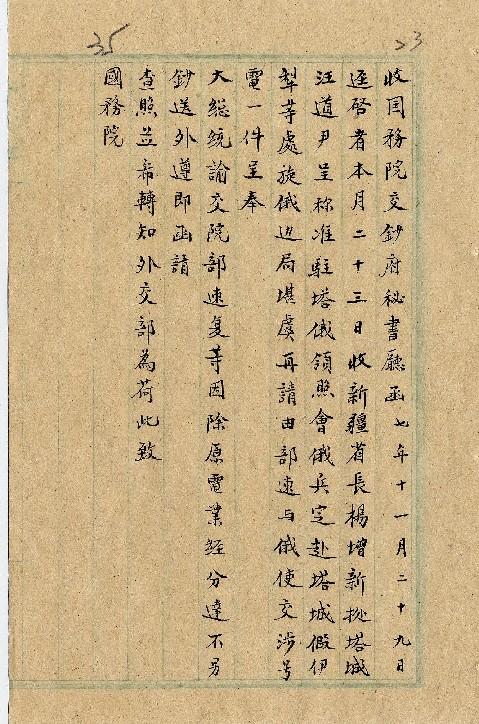 23
35
收国務院交鈔府秘書廳函七年十一月二十九日
逕啓者本月二十三日收新疆省長楊增新據塔城
汪道尹呈称准駐塔俄領照會俄兵定赴塔城假伊
犁等處旋俄边局堪虞再請由部速与俄使交涉号
電一件呈奉
大総統諭交院部速复等因除原電業經分達不另
鈔送外遵即函請
查照並希轉知外交部為荷此致
國務院